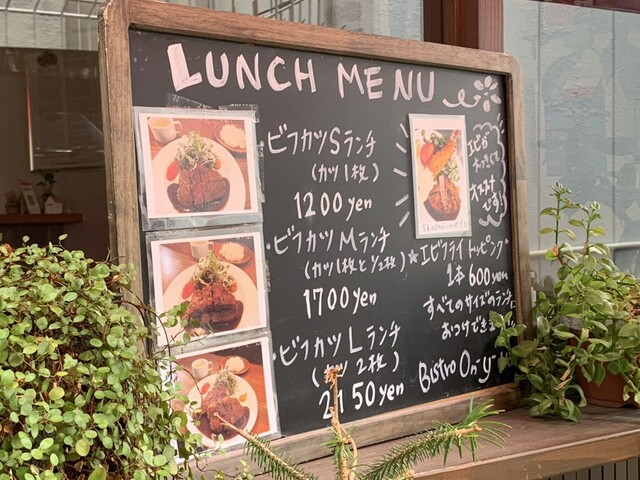 LUNCH MENU
ビフカツSランチ
(カツ1枚)
1200yen
・ビフカツMランチ
(カツ1枚と1/2枚)
1700yen
・ビフカツLランチ
(カツ2枚)
2150yen
エビが
オススメ
です!
★エビフライトッピング・
1本600yen
すべてのサイズのランチに
おつけできま
Bistro On-y